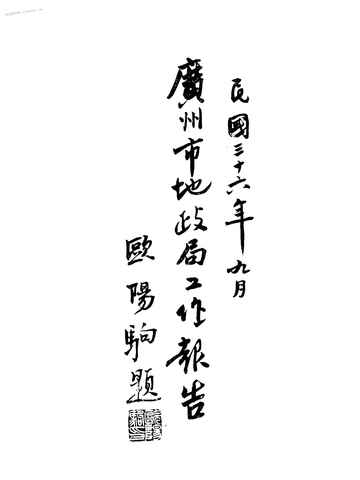 民國三十六年九月
廣州市地政局工作報告
歐陽駒題